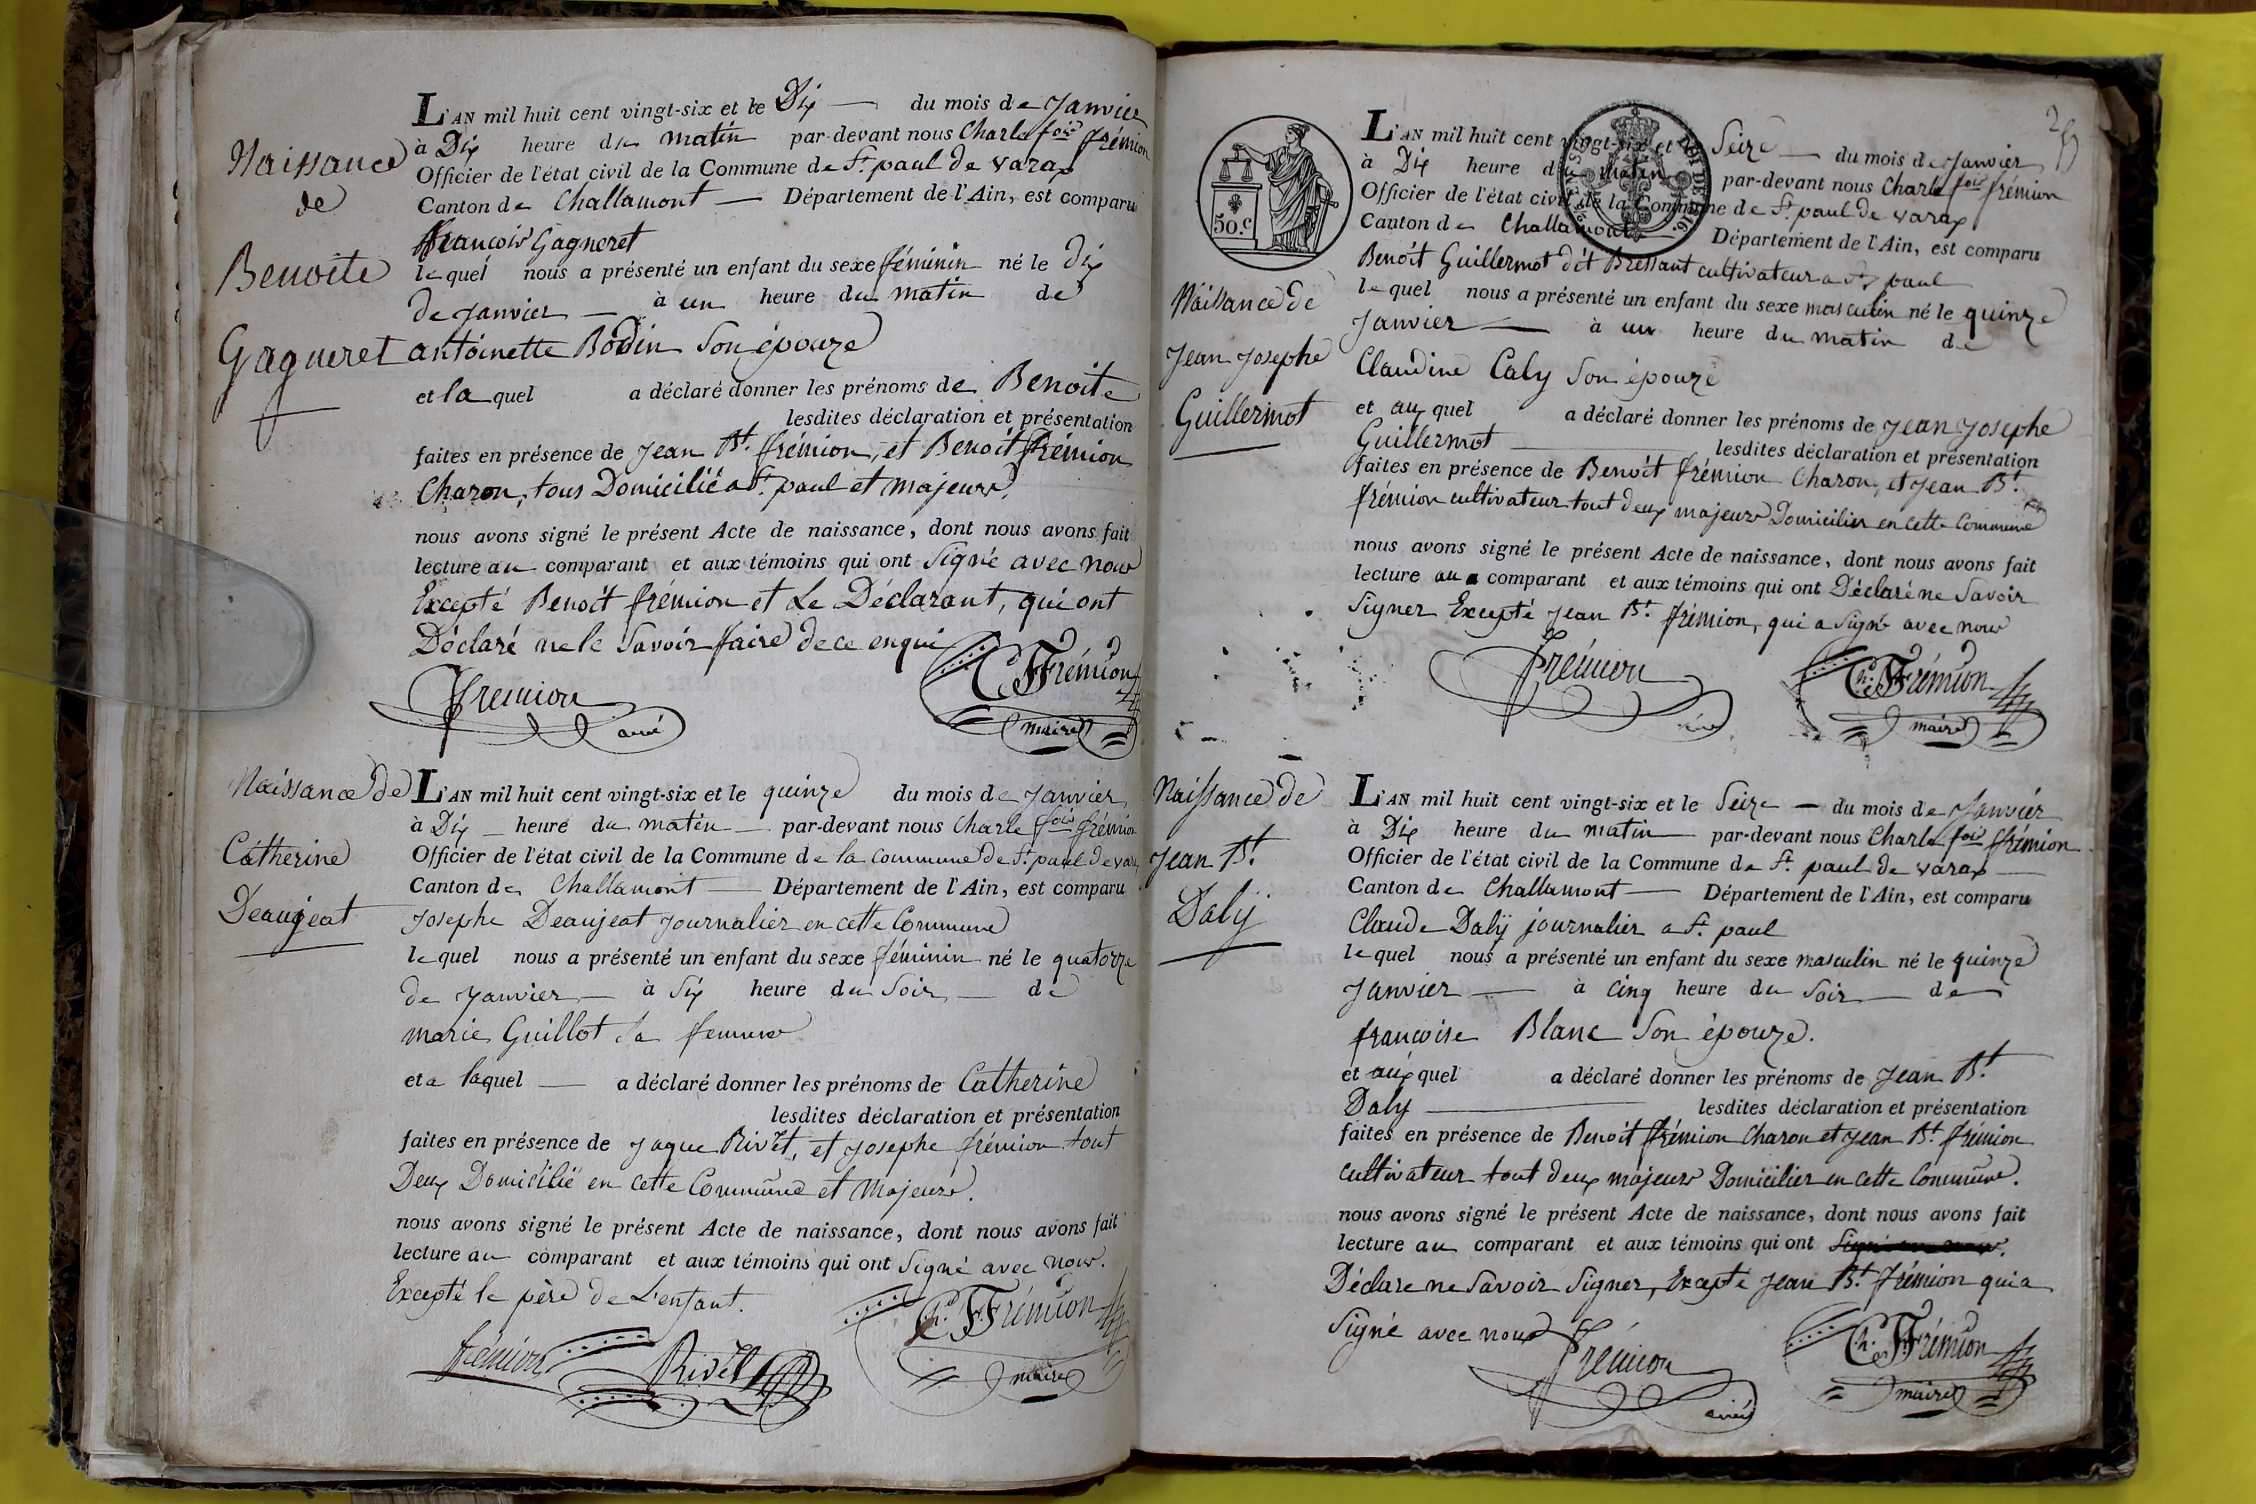 Naissance
de
Benoite
Gagneret
L'AN mil huit cent vingt-six et le Dix du mois de Janvier
à Dix heure du matin par-devant nous Charle fois frémion
Officier de l'état civil de la Commune de St. paul de varax
Canton de Challamont Département de l'Ain, est comparu
francois Gagneret
lequel nous a présenté un enfant du sexe féminin né le dix
de Janvier à un heure du matin de
antoinette Bodin Son épouze
et la quel a déclaré donner les prénoms de Benoite
lesdites déclaration et présentation
faites en présence de Jean Bt. frémion, et Benoit frémion
Charon, tous Domicilié a St. paul et majeurs.
nous avons signé le présent Acte de naissance, dont nous avons fait
lecture au comparant et aux témoins qui ont Signé avec nous
Excepté Benoit frémion et Le Déclarant, qui ont
Déclaré ne le Savoir faire de ce enqui
fremion
ainé
Ch. Frémion
maire
Naissance de
Catherine
Deaujeat
L'AN mil huit cent vingt-six et le quinze du mois de Janvier
à Dix heure du matin par-devant nous Charle fois frémion
Officier de l'état civil de la Commune de la Commune de St. paul de varax
Canton de Challamont Département de l'Ain, est comparu
Josephe Deaujeat Journalier en cette Commune
lequel nous a présenté un enfant du sexe féminin né le quatorze
de Janvier à Six heure du Soir de
marie Guillot Sa femme
et a laquel a déclaré donner les prénoms de Catherine
lesdites déclaration et présentation
faites en présence de Jaque Rivet, et Josephe frémion tout
Deux Domicilié en cette Commune et Majeurs.
nous avons signé le présent Acte de naissance, dont nous avons fait
lecture au comparant et aux témoins qui ont Signé avec nous.
Excepté le père de L'enfant.
frémion
Rivet
Ch. Frémion
maire
50.C
Naissance de
Jean Josephe
Guillermot
L'AN mil huit cent vingt-six et le Seize du mois de Janvier
à Dix heure du matin par-devant nous Charle fois frémion
Officier de l'état civil de la Commune de St. paul de varax
Canton de Challamont Département de l'Ain, est comparu
Benoit Guillermot dit Bressant cultivateur a St. paul
lequel nous a présenté un enfant du sexe masculin né le quinze
Janvier à un heure du matin de
Claudine Caly Son épouze
et aux quel a déclaré donner les prénoms de Jean Josephe
Guillermot lesdites déclaration et présentation
faites en présence de Benoit frémion Charon, et Jean Bt.
frémion cultivateur tout deux majeurs Domicilier en cette Commune
nous avons signé le présent Acte de naissance, dont nous avons fait
lecture au comparant et aux témoins qui ont Déclaré ne Savoir
Signer Excepté Jean Bt. frémion, qui a Signé avec nous
fremion
ainé
Ch. Frémion
maire
Naissance de
Jean Bt.
Daly
L'AN mil huit cent vingt-six et le Seize du mois de Janvier
à Dix heure du matin par-devant nous Charle fois frémion
Officier de l'état civil de la Commune de St. paul de varax
Canton de Challamont Département de l'Ain, est comparu
Claude Daly journalier a St. paul
lequel nous a présenté un enfant du sexe masculin né le quinze
Janvier à cinq heure du Soir de
francoise Blanc Son épouze.
et aux quel a déclaré donner les prénoms de Jean Bt.
Daly lesdites déclaration et présentation
faites en présence de Benoit frémion Charon et Jean Bt. frémion
cultivateur tout deux majeurs Domicilier en cette Commune.
nous avons signé le présent Acte de naissance, dont nous avons fait
lecture au comparant et aux témoins qui ont
Déclare ne Savoir Signer, Excepté Jean Bt. frémion qui a
Signé avec nous
fremion
ainé
Ch. Frémion
maire